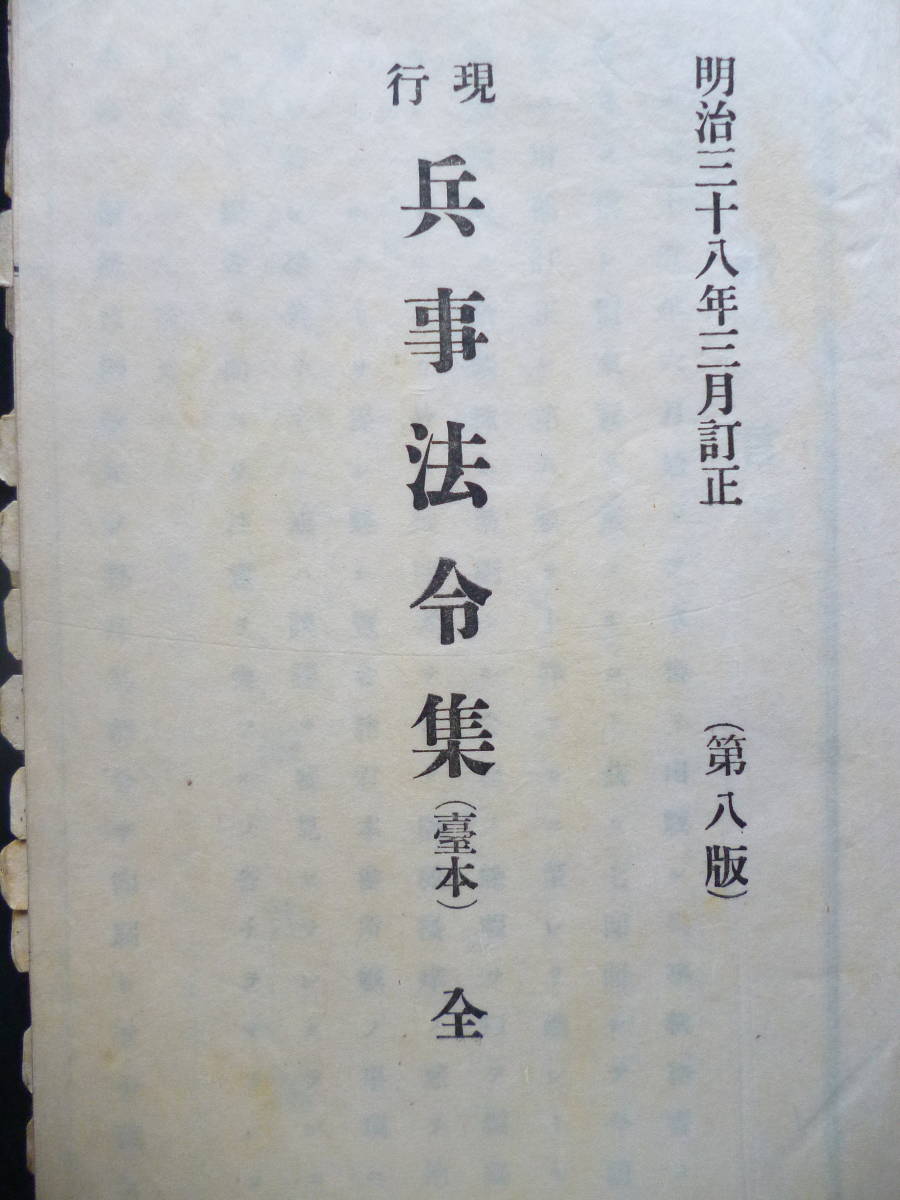 明治三十八年三月訂正 （第八版）
現行 兵事法令集（臺本） 全